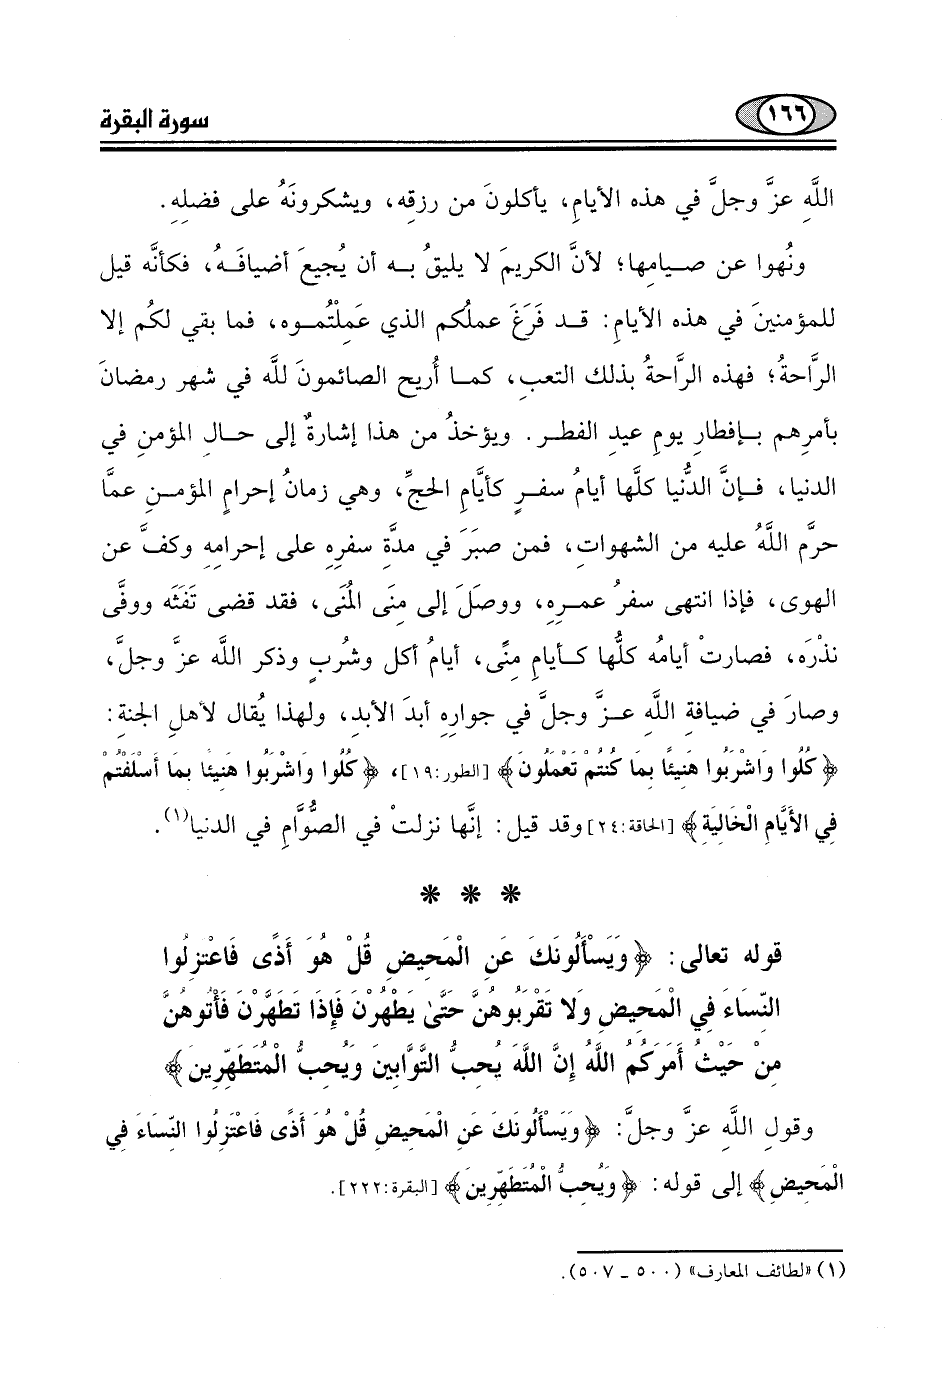 ١٦٦
سورة البقرة
اللَّهِ عزَّ وجلَّ في هذه الأيامِ، يأكلونَ من رزقِه، ويشكرونَهُ على فضلِهِ.
ونُهوا عن صيامِها؛ لأنَّ الكريمَ لا يليقُ به أن يُجيعَ أضيافَهُ، فكأنَّه قيل
للمؤمنينَ في هذه الأيامِ: قد فَرَغَ عملُكم الذي عَمِلْتُموه، فما بقي لكُم إلا
الرَّاحةُ؛ فهذه الراحةُ بذلك التعبِ، كما أُريح الصائمونَ للَّه في شهرِ رمضانَ
بأمرِهم بإفطارِ يومِ عيدِ الفطرِ. ويؤخذُ من هذا إشارةٌ إلى حالِ المؤمنِ في
الدنيا، فإنَّ الدُّنيا كلَّها أيامُ سفرٍ كأيَّامِ الحجِّ، وهي زمانُ إحرامِ المؤمنِ عمَّا
حرَّم اللَّهُ عليه من الشهواتِ، فمن صبَرَ في مدَّةِ سفرِهِ على إحرامِهِ وكفَّ عن
الهوى، فإذا انتهى سفرُ عمرِهِ، ووصَلَ إلى مِنَى المُنَى، فقد قضى تفَثَه ووفَّى
نذْرَه، فصارتْ أيامُه كلُّها كأيامِ مِنًى، أيامُ أكلٍ وشُربٍ وذكر اللَّه عزَّ وجلَّ،
وصارَ في ضيافةِ اللَّهِ عزَّ وجلَّ في جوارِهِ أبدَ الأبدِ، ولهذا يُقال لأهلِ الجنةِ:
﴿كُلُوا وَاشْرَبُوا هَنِيئًا بِمَا كُنتُمْ تَعْمَلُونَ﴾ [الطور:١٩]، ﴿كُلُوا وَاشْرَبُوا هَنِيئًا بِمَا أَسْلَفْتُمْ
فِي الأَيَّامِ الْخَالِيَةِ﴾ [الحاقة:٢٤] وقد قيل: إنَّها نزلتْ في الصُّوَّامِ في الدنيا(١).
* * *
قوله تعالى: ﴿وَيَسْأَلُونَكَ عَنِ الْمَحِيضِ قُلْ هُوَ أَذًى فَاعْتَزِلُوا
النِّسَاءَ فِي الْمَحِيضِ وَلا تَقْرَبُوهُنَّ حَتَّىٰ يَطْهُرْنَ فَإِذَا تَطَهَّرْنَ فَأْتُوهُنَّ
مِنْ حَيْثُ أَمَرَكُمُ اللَّهُ إِنَّ اللَّهَ يُحِبُّ التَّوَّابِينَ وَيُحِبُّ الْمُتَطَهِّرِينَ﴾
وقولِ اللَّهِ عزَّ وجلَّ: ﴿وَيَسْأَلُونَكَ عَنِ الْمَحِيضِ قُلْ هُوَ أَذًى فَاعْتَزِلُوا النِّسَاءَ فِي
الْمَحِيضِ﴾ إلى قوله: ﴿وَيُحِبُّ الْمُتَطَهِّرِينَ﴾ [البقرة:٢٢٢].
(١) «لطائف المعارف» (٥٠٠ - ٥٠٧).